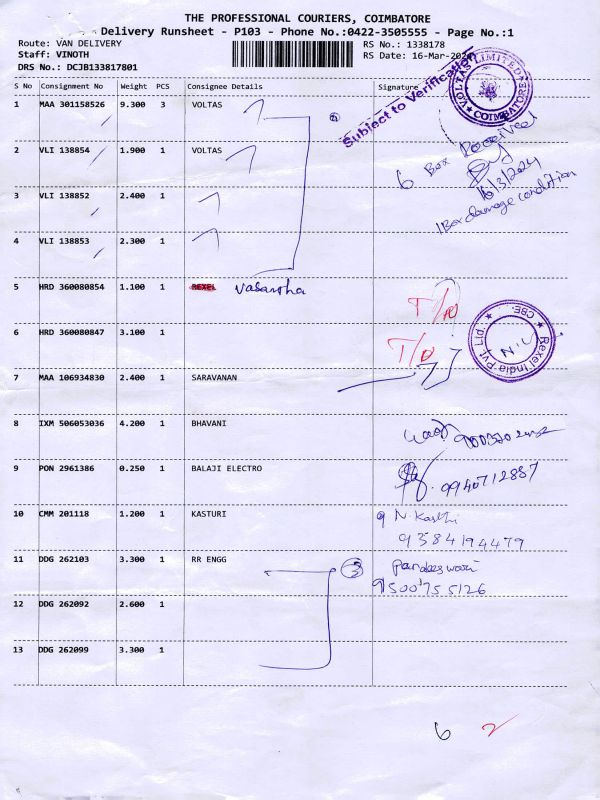 THE PROFESSIONAL COURIERS, COIMBATORE
Delivery Runsheet - P103 - Phone No.:0422-3505555 - Page No.:1
Route: VAN DELIVERY
Staff: VINOTH
DRS No.: DCJB133817801
RS No.: 1338178
RS Date: 16-Mar-2024
S No Consignment No Weight PCS Consignee Details Signature
Subject to Verification
VOLTAS LIMITED COIMBATORE
1 MAA 301158526 9.300 3 VOLTAS
6 Box Received
16/3/2024
1 Box damage condition
2 VLI 138854 1.900 1 VOLTAS
3 VLI 138852 2.400 1
4 VLI 138853 2.300 1
5 HRD 360080854 1.100 1 REXEL Vasantha
T/D
6 HRD 360080847 3.100 1
T/D
Rexel India Pvt. Ltd. CBE.
7 MAA 106934830 2.400 1 SARAVANAN
8 IXM 506053036 4.200 1 BHAVANI
9 PON 2961386 0.250 1 BALAJI ELECTRO
9940712887
10 CMM 201118 1.200 1 KASTURI
9384194479
11 DDG 262103 3.300 1 RR ENGG
3
9500755126
12 DDG 262092 2.600 1
13 DDG 262099 3.300 1
6 2